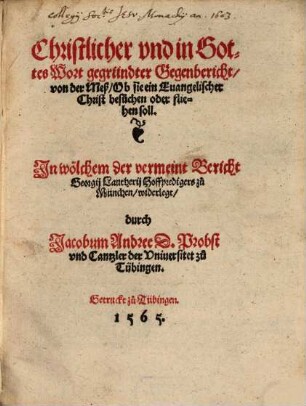 Collegij Soctis Jesu Monachij an. 1603.
Christlicher vnd in Got-
tes Wort gegründter Gegenbericht/
von der Meß/ Ob sie ein Euangelischer
Christ besůchen oder flie-
hen soll.
In wölchem der vermeint Bericht
Georgij Lautherij Hoffpredigers zů
München/ widerlegt/
durch
Jacobum Andree D. Probst
vnd Cantzler der Vniuersitet zů
Tübingen.
Getruckt zů Tübingen.
1565.